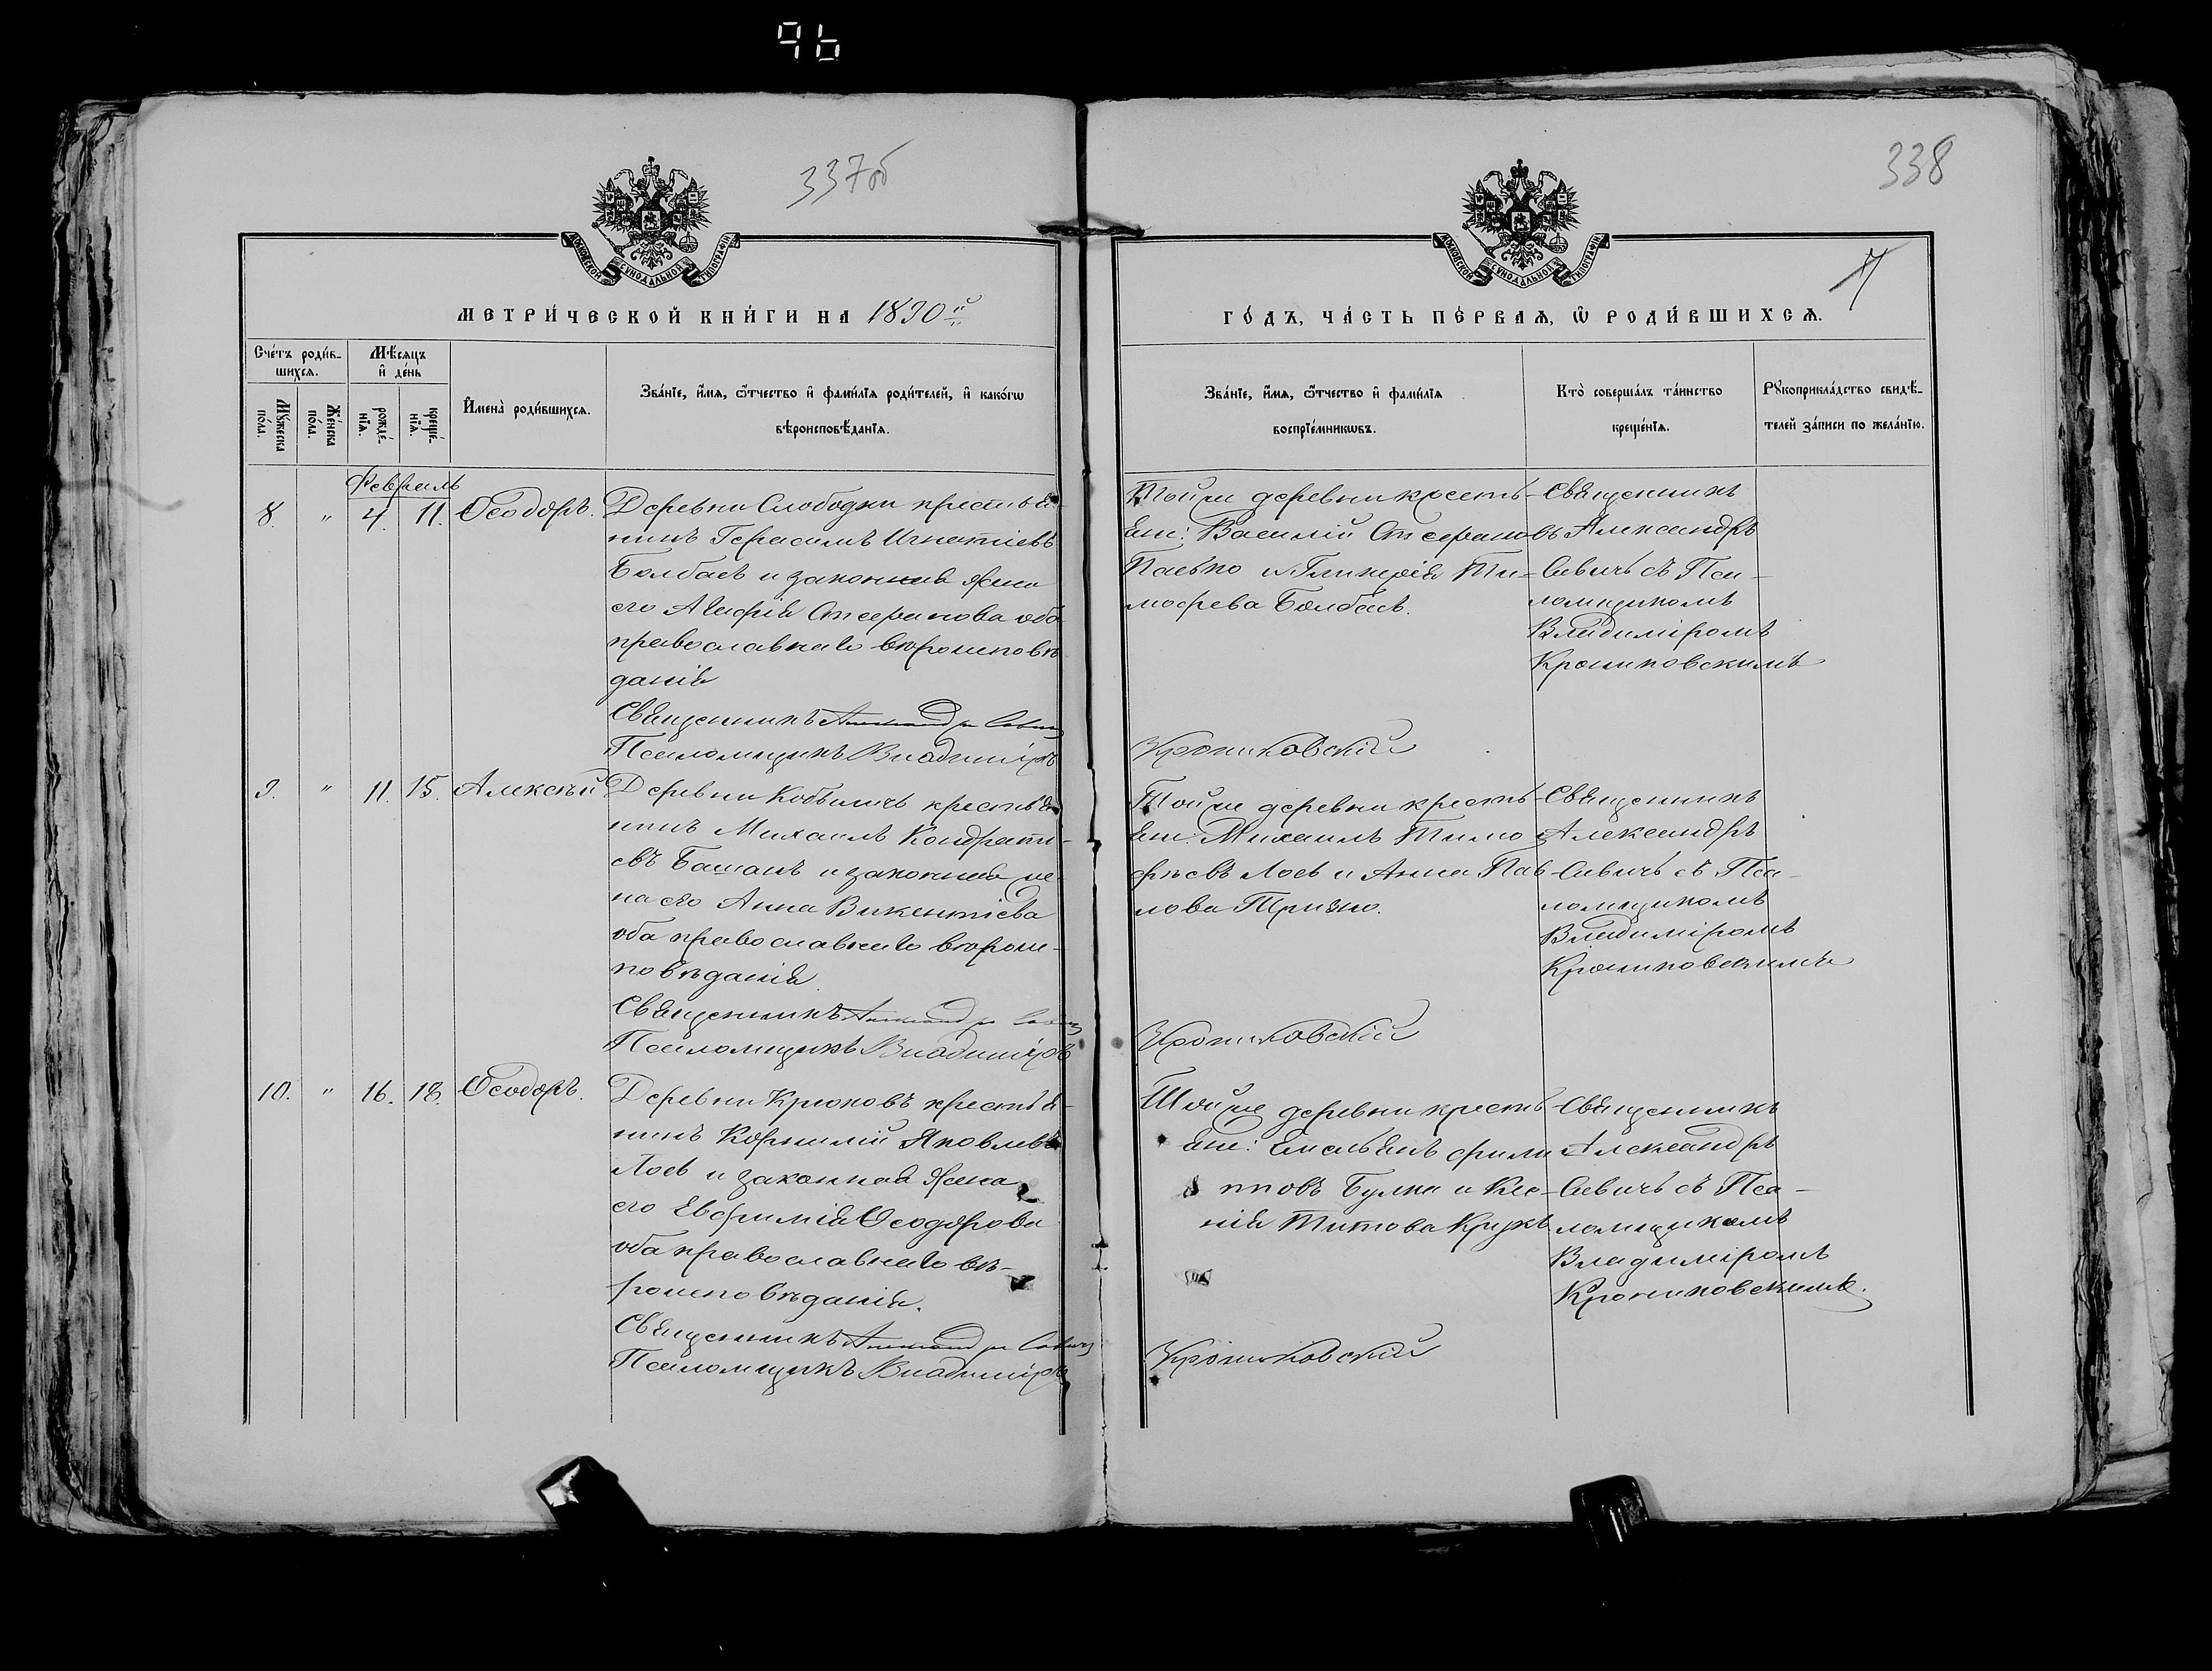 96
337об
338
7
МОСКОВСКОЙ СУНОДАЛЬНОЙ ТИПОГРАФІИ
МОСКОВСКОЙ СУНОДАЛЬНОЙ ТИПОГРАФІИ
МЕТРИ́ЧЕСКОЙ КНИ́ГИ НА 1890й
ГО́ДЪ, ЧА́СТЬ ПЕ́РВАѦ, Ѡ҆ РОДИ́ВШИХСѦ.
Сче́тъ роди́в-
шихсѧ.
Мѣ́сѧцъ
и҆ де́нь
Мꙋ́жеска
по́ла.
Же́нска
по́ла.
рожде́-
нїѧ.
креще́-
нїѧ.
И҆мена̀ роди́вшихсѧ.
Зва́нїе, и҆́мѧ, ѻ҆́тчество и҆ фами́лїѧ роди́телей, и҆ како́гѡ
вѣроисповѣ́данїѧ.
Зва́нїе, и҆́мѧ, ѻ҆́тчество и҆ фами́лїѧ
воспрїе́мникѡвъ.
Кто̀ соверша́лъ та́инство
креще́нїѧ.
Рꙋкоприкла́дство свидѣ́-
телей за́писи по жела́нїю.
Февраль
8. " 4. 11. Ѳеодоръ.
Деревни Слободки крестья-
нинъ Герасимъ Игнатіевъ
Болбасъ и законная жена
его Агафія Стефанова оба
православнаго вѣроисповѣ-
данія
Священникъ Александръ Савичъ
Псаломщикъ Владиміръ
Тойже деревни кресть-
яне: Василій Стефановъ
Пасько и Гликерія Ти-
мофева Болбасъ.
Крониковскій
Священникъ
Александръ
Савичъ съ Пса-
ломщикомъ
Владиміромъ
Крониковскимъ
9. " 11. 15. Алексѣй
Деревни Кобыличъ крестья-
нинъ Михаилъ Кондрати-
евъ Башанъ и законная же-
на его Анна Викентіева
оба православнаго вѣроис-
повѣданія
Священникъ Александръ Савичъ
Псаломщикъ Владиміръ
Тойже деревни кресть-
яне: Михаилъ Тимо
фѣевъ Лоевъ и Анна Пав-
лова
Крониковскій
Священникъ
Александръ
Савичъ съ Пса-
ломщикомъ
Владиміромъ
Крониковскимъ
10. " 16. 18. Ѳеодоръ.
Деревни Крюковъ крестья-
нинъ Корнилій Яковлевъ
Лоевъ и законная жена
его Евфимія Ѳеодорова
оба православнаго вѣ-
роисповѣданія.
Священникъ Александръ Савичъ
Псаломщикъ Владиміръ
Тойже деревни кресть-
яне: Емельянъ Фили
пповъ Булка и Ксе-
нія Титова Крукъ
Крониковскій
Священникъ
Александръ
Савичъ съ Пса-
ломщикомъ
Владиміромъ
Крониковскимъ.